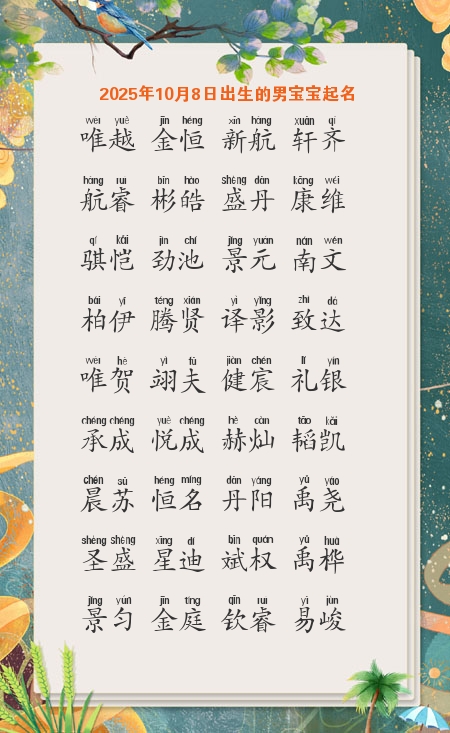 2025年10月8日出生的男宝宝起名
wéi yuè jīn héng xīn háng xuān qí
唯越 金恒 新航 轩齐
háng ruì bīn hào shèng dān kāng wéi
航睿 彬皓 盛丹 康维
qí kǎi jìn chí jǐng yuán nán wén
骐恺 劲池 景元 南文
bǎi yī téng xián yì yǐng zhì dá
柏伊 腾贤 译影 致达
wéi hè yì fū jiàn chén lǐ yín
唯贺 翊夫 健宸 礼银
chéng chéng yuè chéng hè càn tāo kǎi
承成 悦成 赫灿 韬凯
chén sū héng míng dān yáng yǔ yáo
晨苏 恒名 丹阳 禹尧
shèng shèng xīng dí bīn quán yǔ huà
圣盛 星迪 斌权 禹桦
jǐng yún jīn tíng qīn ruì yì jùn
景匀 金庭 钦睿 易峻